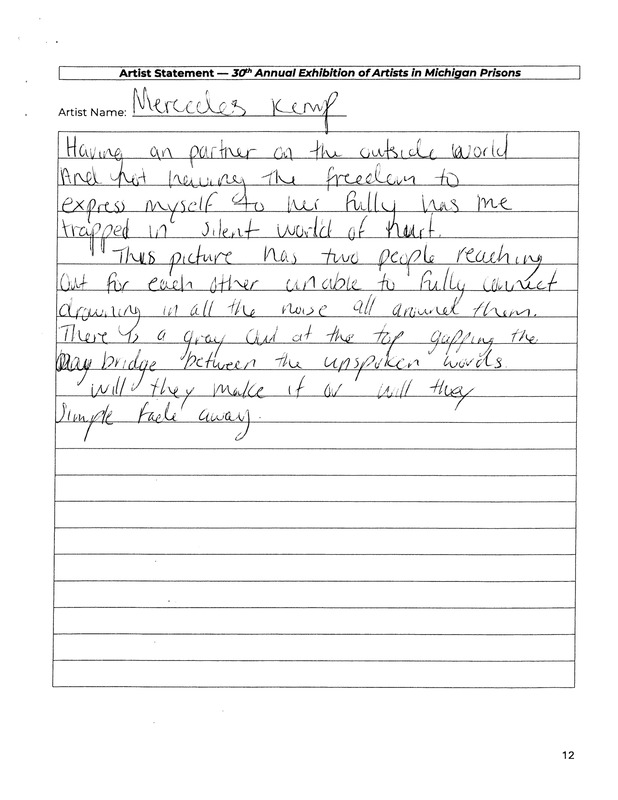 Artist Statement — 30th Annual Exhibition of Artists in Michigan Prisons
Artist Name: Mercedes Kemp
Having an partner on the outside world
And not having the freedom to
express myself to her fully has me
trapped in silent world of hurt.
This picture has two people reaching
Out for each other unable to fully connect
drowning in all the noise all around them.
There is a gray owl at the top gapping the
bridge between the unspoken words.
will they make it or will they
Simple fade away.
12